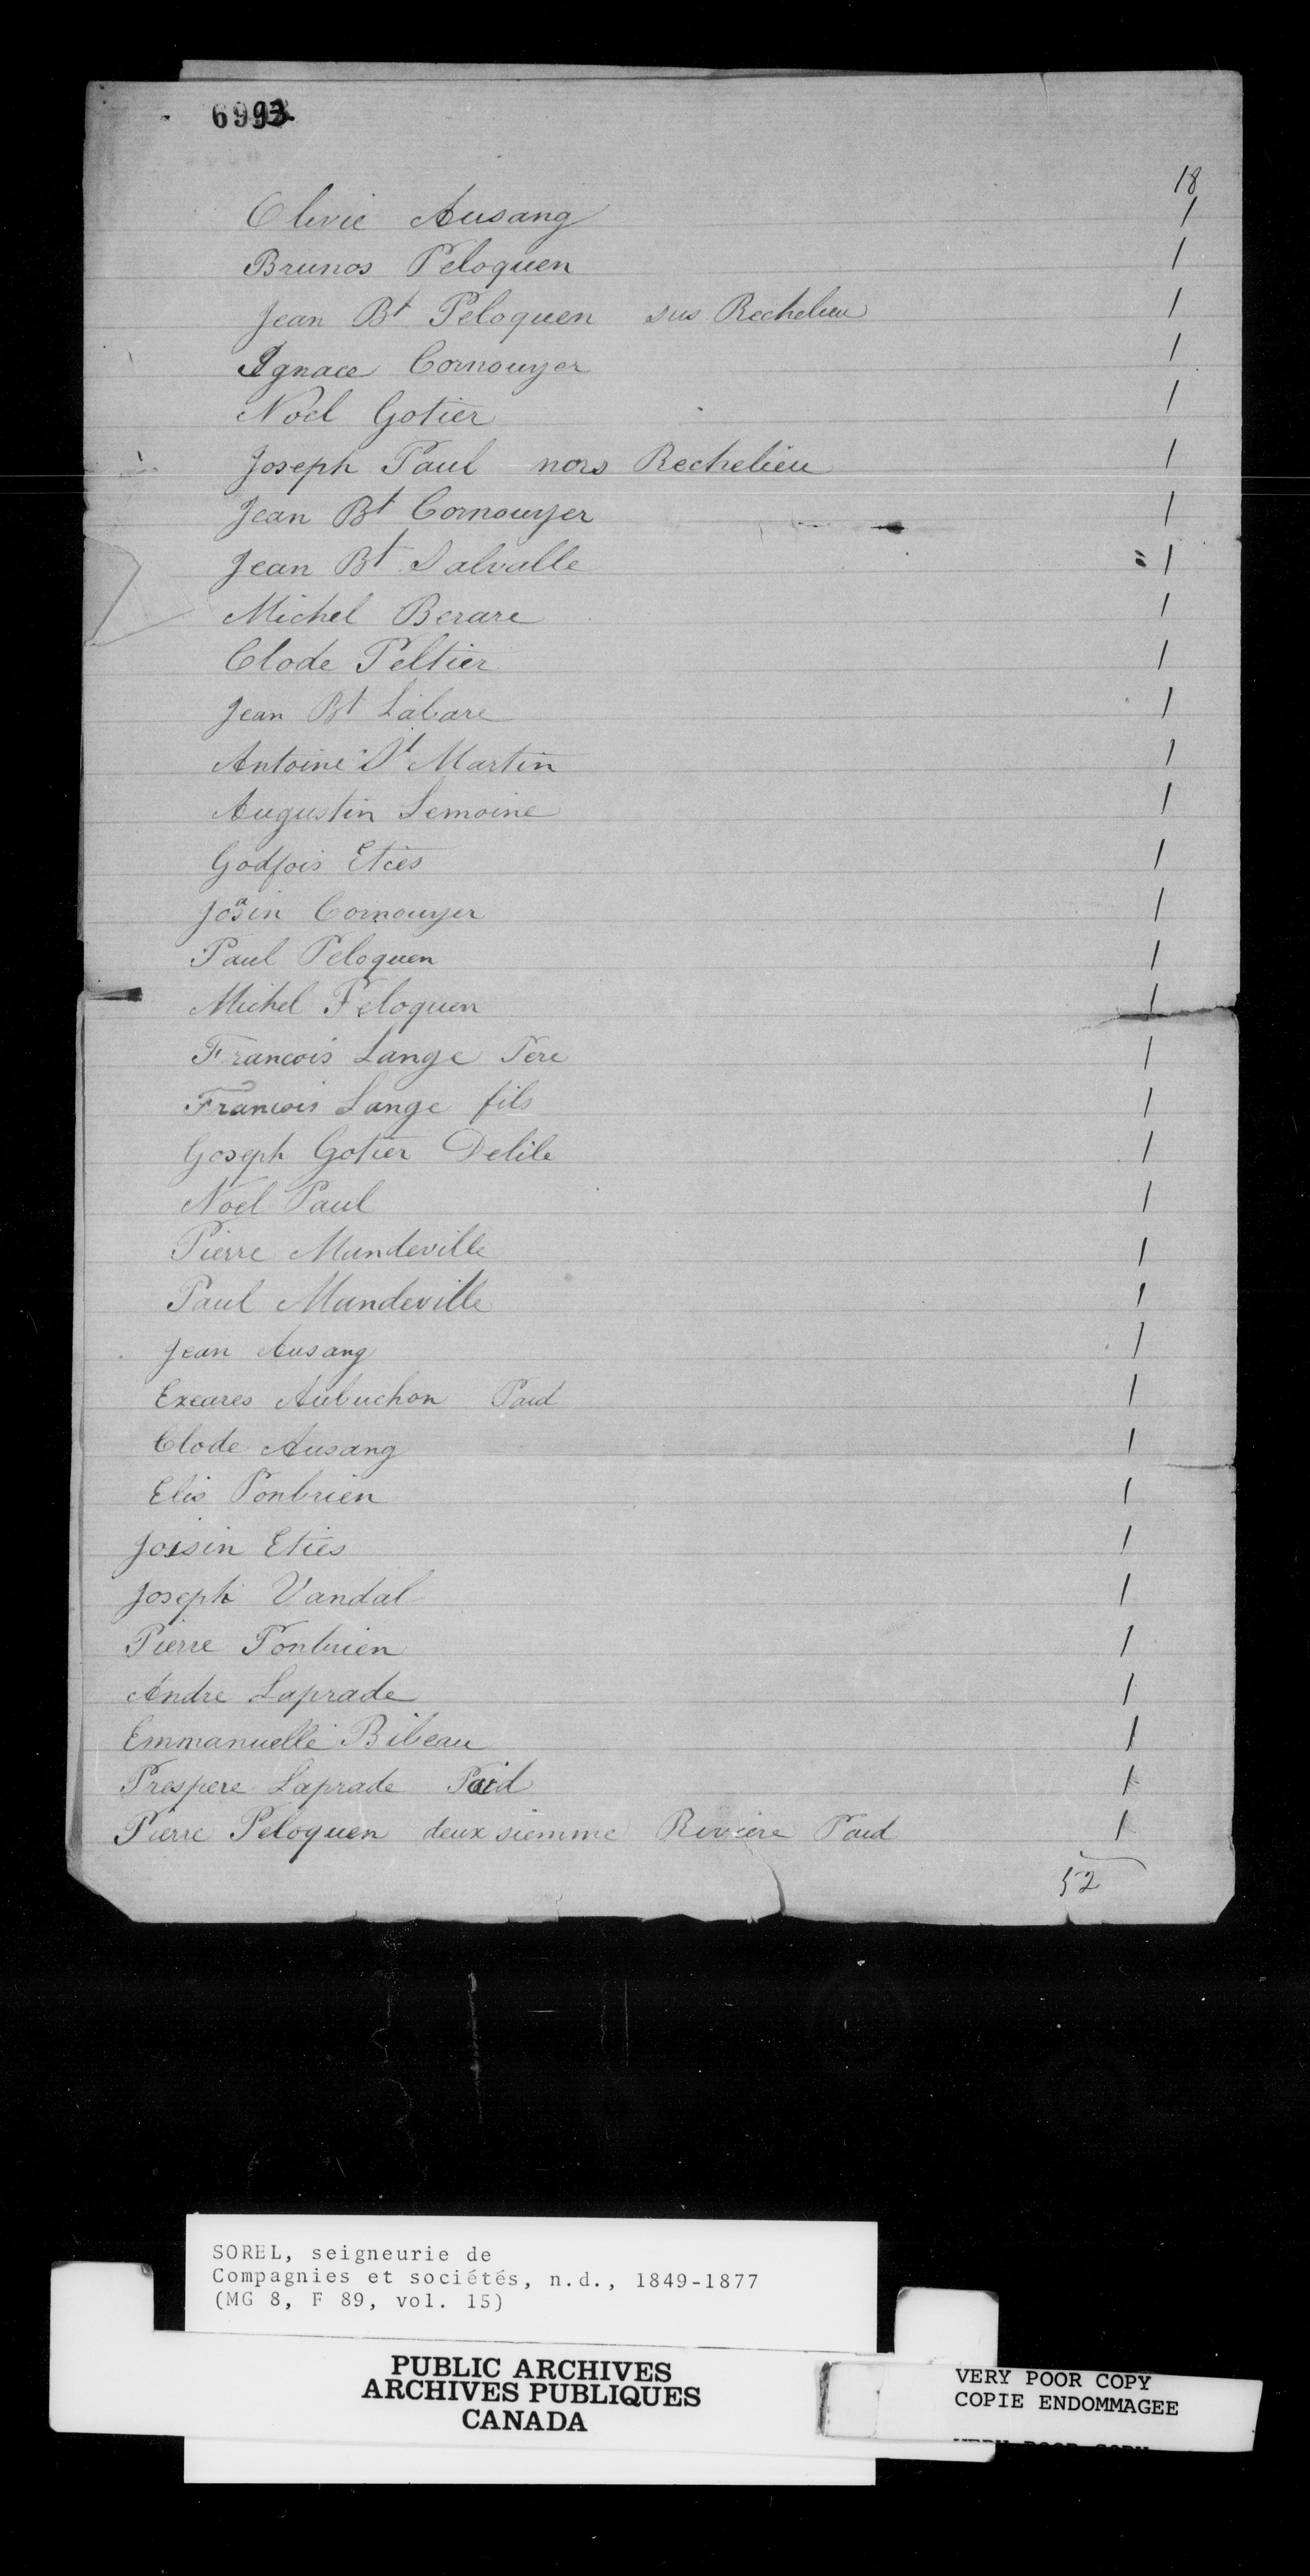 6993
18
Olivie Ausang 1
Brunos Peloquen 1
Jean Bt Peloquen sus Rechelieu 1
Ignace Cornouyer 1
Noel Gotier 1
Joseph Paul nors Rechelieu 1
Jean Bt Cornouyer 1
Jean Bt Salvalle 1
Michel Berare 1
Clode Peltier 1
Jean Bt Labare 1
Antoine St Martin 1
Augustin Lemoine 1
Godfois Eties 1
Josin Cornouyer 1
Paul Peloquen 1
Michel Peloquen 1
Francois Lange Pere 1
Francois Lange fils 1
Goseph Gotier Delile 1
Noel Paul 1
Pierre Mandeville 1
Paul Mandeville 1
Jean Ausang 1
Exeares Aubuchon Paid 1
Clode Ausang 1
Elis Ponbrien 1
Joisin Eties 1
Joseph Vandal 1
Pierre Ponbrien 1
Andre Laprade 1
Emmanuelle Bibeau 1
Prespere Laprade Paid 1
Pierre Peloquen deux siemme Riviere Paid 1
52
SOREL, seigneurie de
Compagnies et sociétés, n.d., 1849-1877
(MG 8, F 89, vol. 15)
PUBLIC ARCHIVES
ARCHIVES PUBLIQUES
CANADA
VERY POOR COPY
COPIE ENDOMMAGEE
VERY POOR COPY